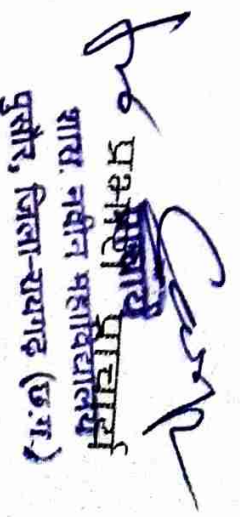 प्रभारी प्राचार्य
प्राचार्य
शास. नवीन महाविद्यालय
पुसौर, जिला-रायगढ़ (छ.ग.)